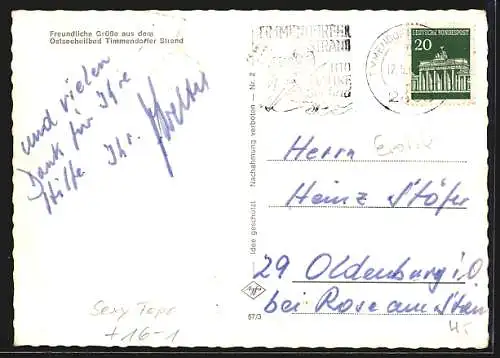 Freundliche Grüße aus dem
Ostseeheilbad Timmendorfer Strand
und vielen
Dank für Ihre
Hilfe Ihr.
TIMMENDORFER
STRAND
DEUTSCHE BUNDESPOST
20
Idee geschützt Nachahmung verboten — Nr. 2
Herrn
Heinz Stöfer
29 Oldenburg i.O
bei Rose am Stau
Sexy Topo
+16-1
57/3